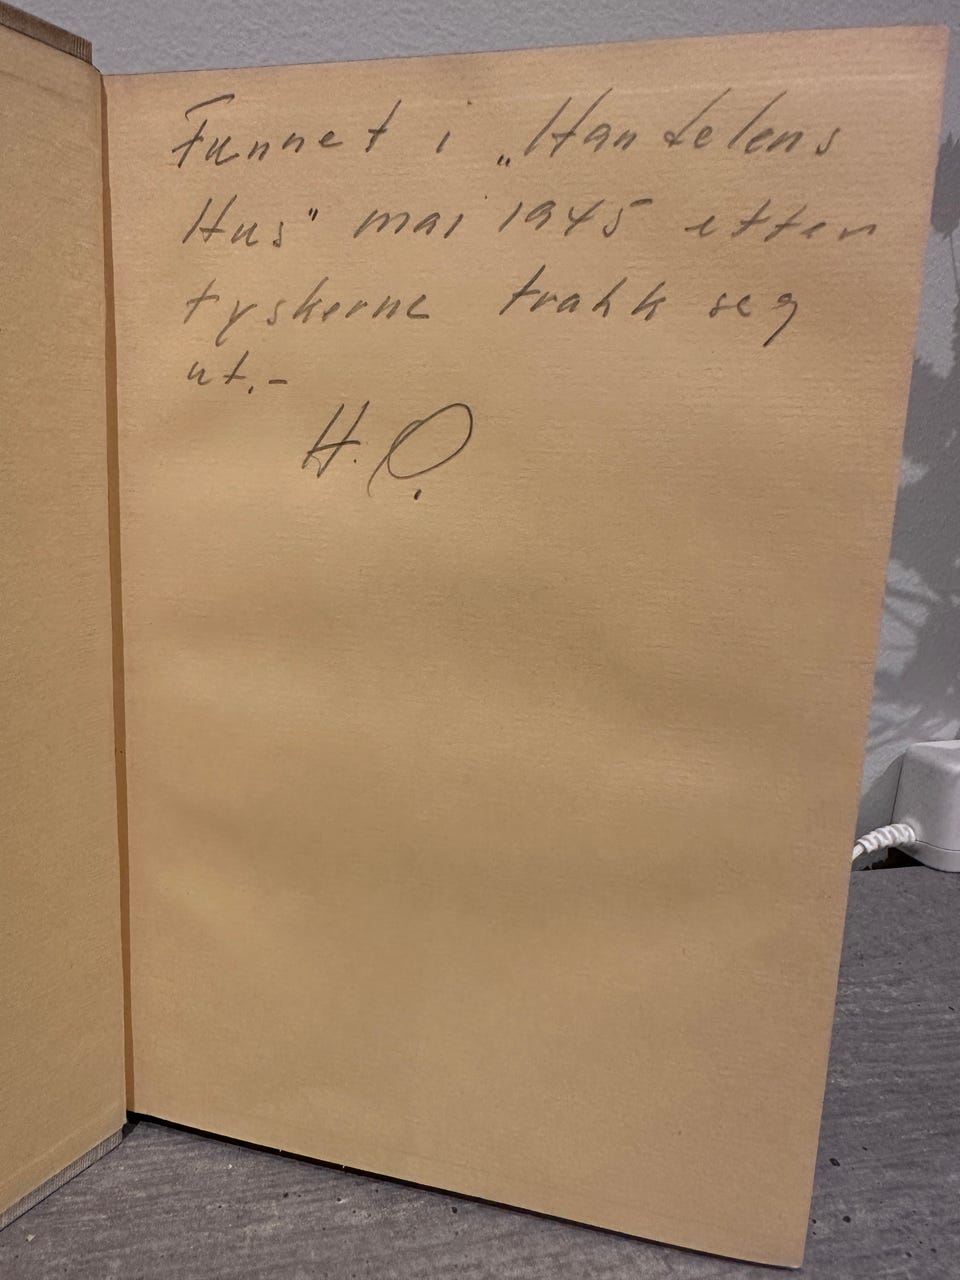 Funnet i „Handelens
Hus" mai 1945 etter
tyskerne trakk seg
ut.-
H. O.